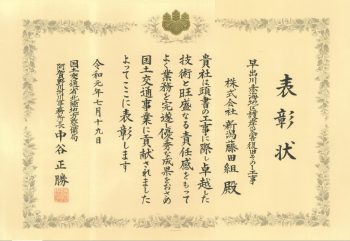 表彰状
早出川赤海地区掘削及び護岸その他工事
株式会社 新潟藤田組 殿
貴社は頭書の工事に際し卓越した
技術と旺盛なる責任感をもって
よく業務を完遂し優秀な成果をおさめ
国土交通事業に貢献されました
よってここに表彰します
令和元年七月十九日
国土交通省北陸地方整備局
阿賀野川河川事務所長 中谷正勝